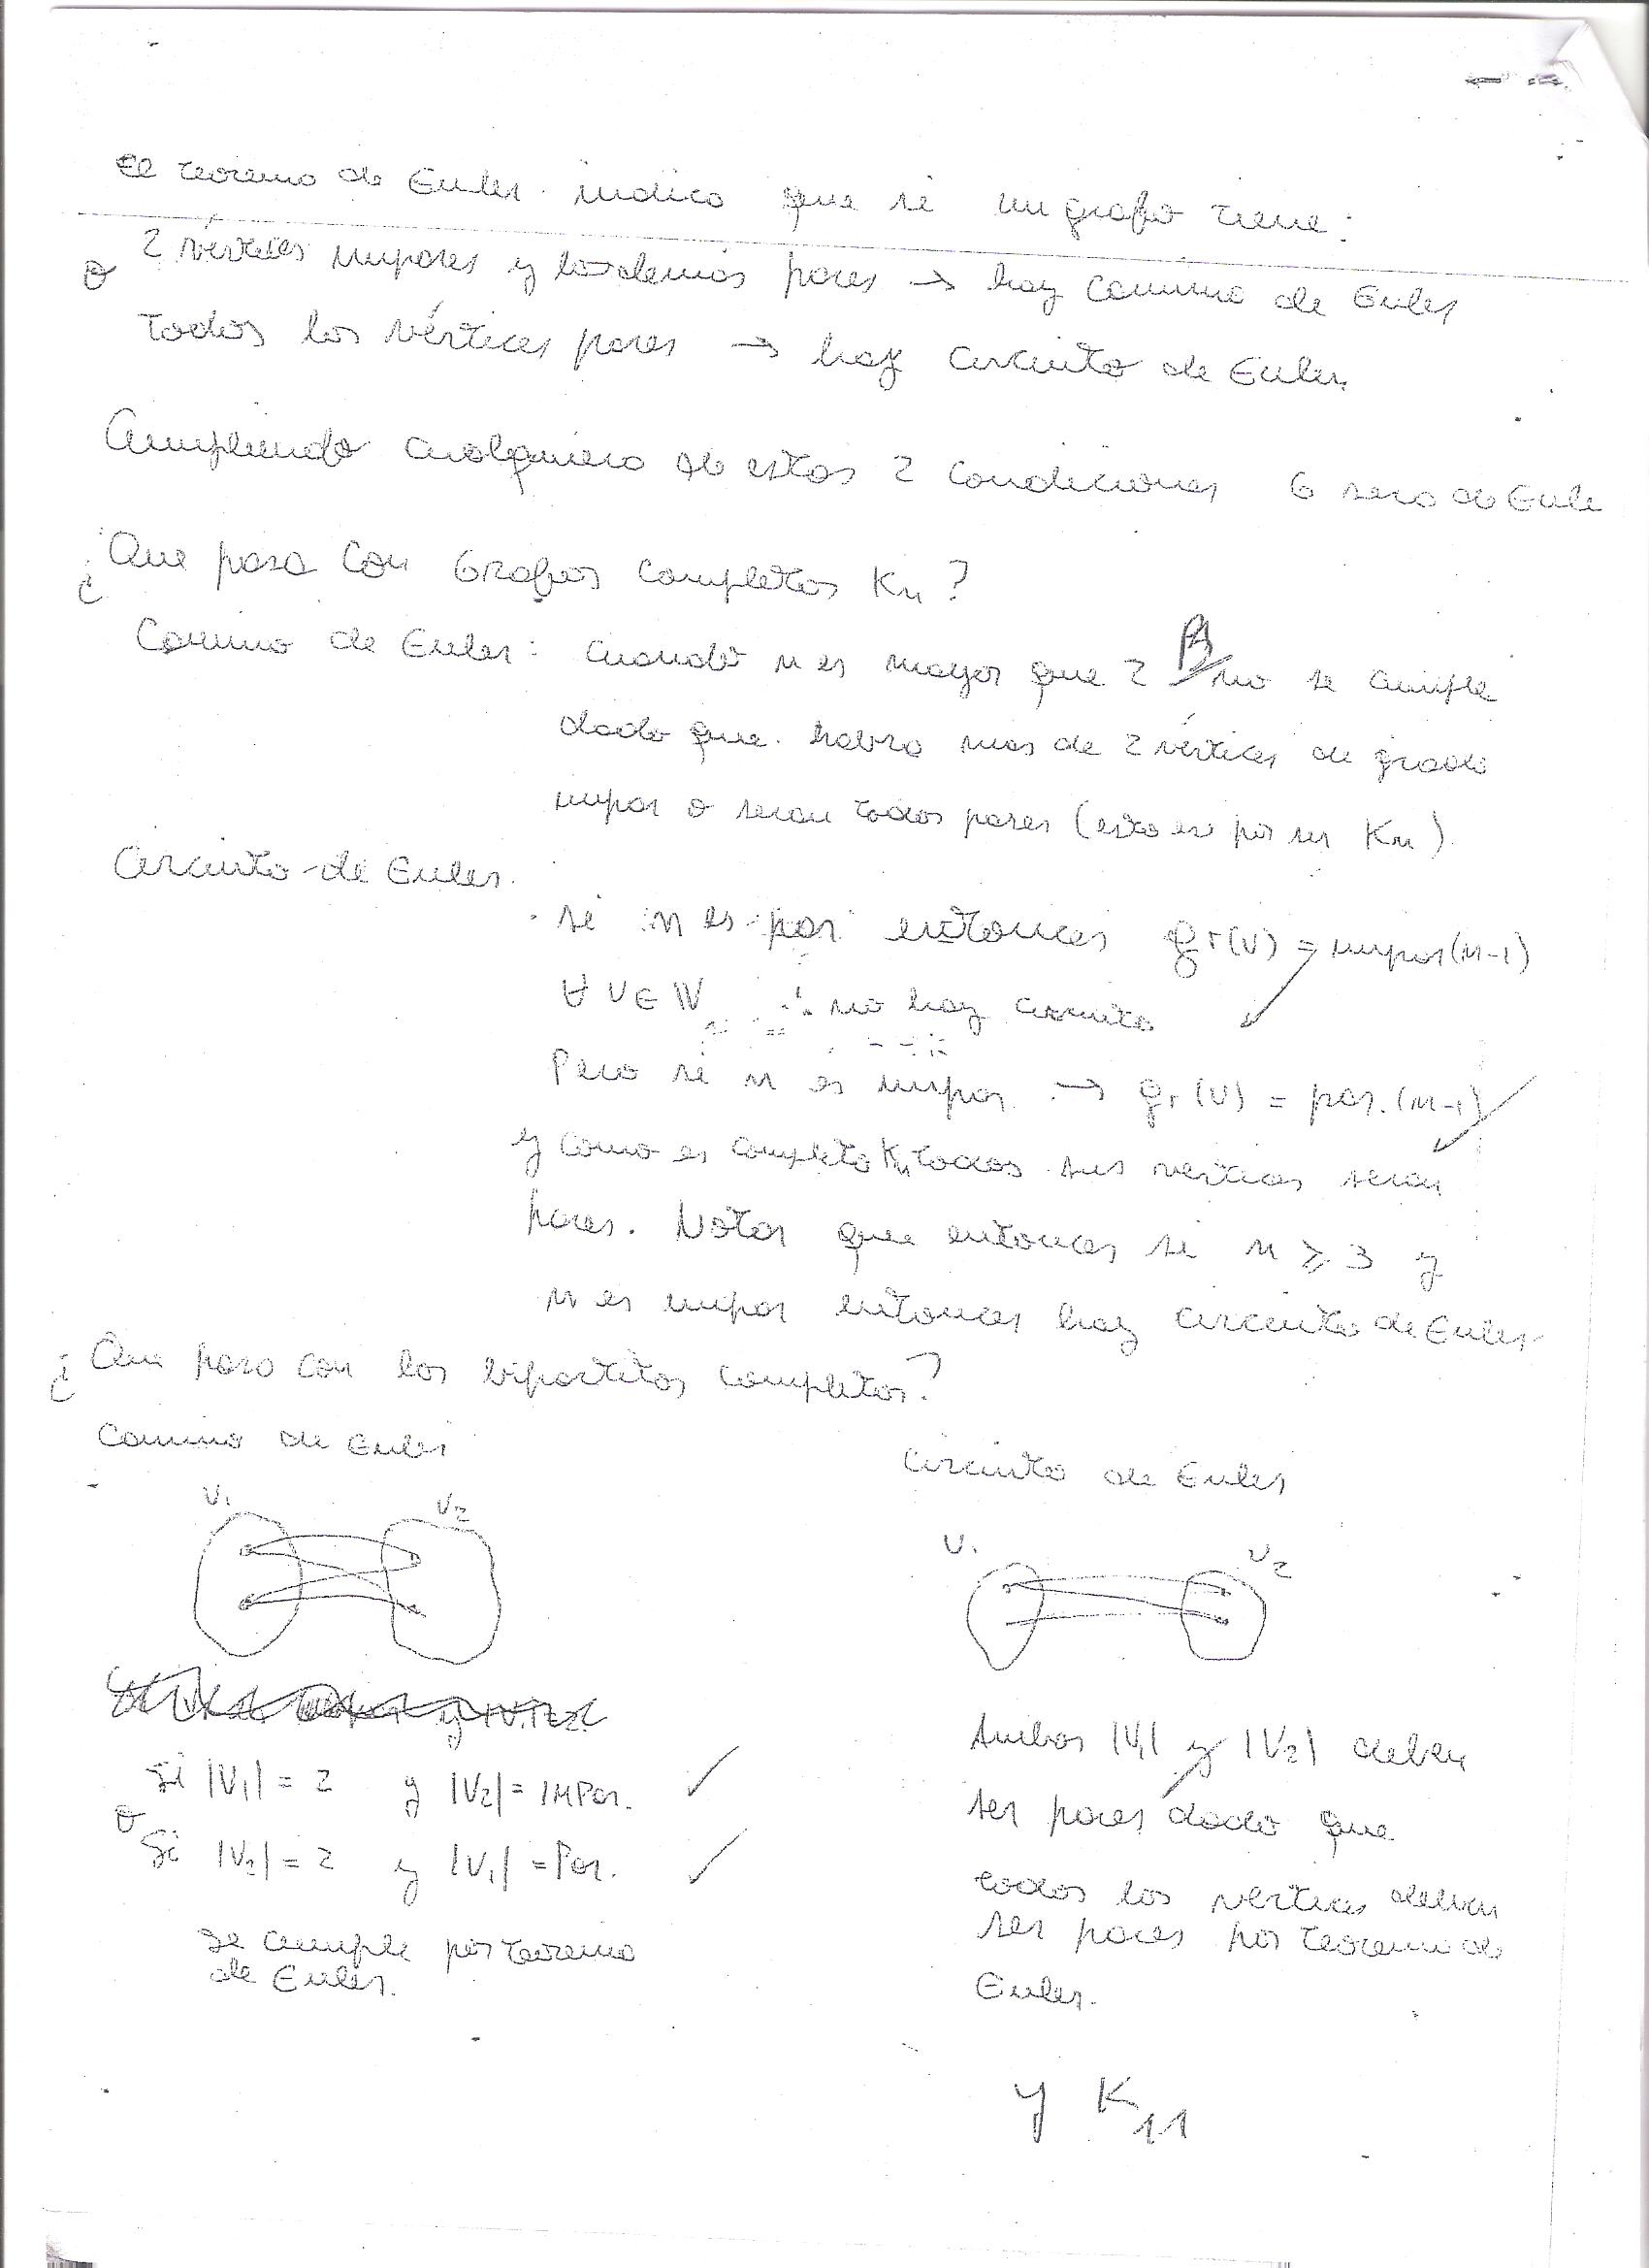 el teorema de Euler indica que si un grafo tiene:
2 vértices impares y los demás pares → hay camino de Euler
o
todos los vértices pares → hay circuito de Euler.
Cumpliendo cualquiera de estas 2 condiciones G sera de Eule
¿Que pasa con Grafos completos Kn?
Camino de Euler: cuando n es mayor que 2 no se cumple
dado que habra mas de 2 vértices de grado
impar o seran todos pares (esto es por ser Kn)
Circuito de Euler.
si n es par entonces gr(V) = impar(n-1)
∀ V ∈ V ∴ no hay circuito
Pero si n es impar → gr(V) = par.(n-1)
y como es completo Kn todos sus vertices seran
pares. Notar que entonces si n ≥ 3 y
n es impar entonces hay circuito de Euler
¿Que pasa con los bipartitos completos?
Camino de Euler
Circuito de Euler
V1 V2
V1 V2
y |V1|=2
Si |V1| = 2 y |V2| = IMPar. ✓
o
Si |V2| = 2 y |V1| = Par. ✓
se cumple por teorema
de Euler.
Ambos |V1| y |V2| deben
ser pares dado que
todos los vertices deben
ser pares por teorema de
Euler.
y K11